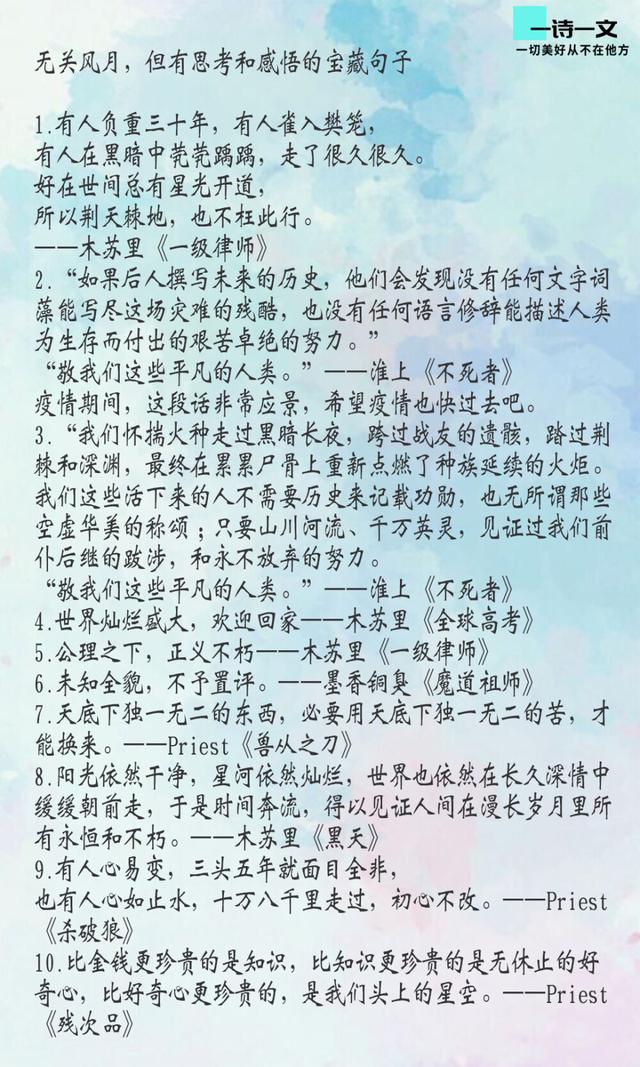 一诗一文
一切美好从不在他方
无关风月，但有思考和感悟的宝藏句子
1.有人负重三十年，有人雀入樊笼，
有人在黑暗中茕茕踽踽，走了很久很久。
好在世间总有星光开道，
所以荆天棘地，也不枉此行。
——木苏里《一级律师》
2.“如果后人撰写未来的历史，他们会发现没有任何文字词
藻能写尽这场灾难的残酷，也没有任何语言修辞能描述人类
为生存而付出的艰苦卓绝的努力。”
“敬我们这些平凡的人类。”——淮上《不死者》
疫情期间，这段话非常应景，希望疫情也快过去吧。
3.“我们怀揣火种走过黑暗长夜，跨过战友的遗骸，踏过荆
棘和深渊，最终在累累尸骨上重新点燃了种族延续的火炬。
我们这些活下来的人不需要历史来记载功勋，也无所谓那些
空虚华美的称颂；只要山川河流、千万英灵，见证过我们前
仆后继的跋涉，和永不放弃的努力。
“敬我们这些平凡的人类。”——淮上《不死者》
4.世界灿烂盛大，欢迎回家——木苏里《全球高考》
5.公理之下，正义不朽——木苏里《一级律师》
6.未知全貌，不予置评。——墨香铜臭《魔道祖师》
7.天底下独一无二的东西，必要用天底下独一无二的苦，才
能换来。——Priest《兽从之刀》
8.阳光依然干净，星河依然灿烂，世界也依然在长久深情中
缓缓朝前走，于是时间奔流，得以见证人间在漫长岁月里所
有永恒和不朽。——木苏里《黑天》
9.有人心易变，三头五年就面目全非，
也有人心如止水，十万八千里走过，初心不改。——Priest
《杀破狼》
10.比金钱更珍贵的是知识，比知识更珍贵的是无休止的好
奇心，比好奇心更珍贵的，是我们头上的星空。——Priest
《残次品》